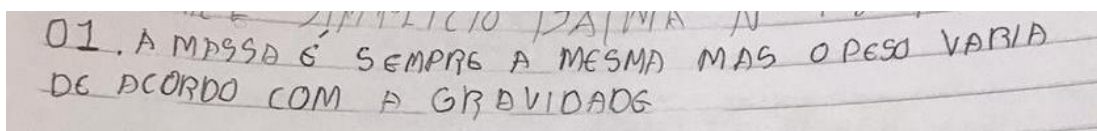 01. A MASSA É SEMPRE A MESMA MAS O PESO VARIA
DE ACORDO COM A GRAVIDADE